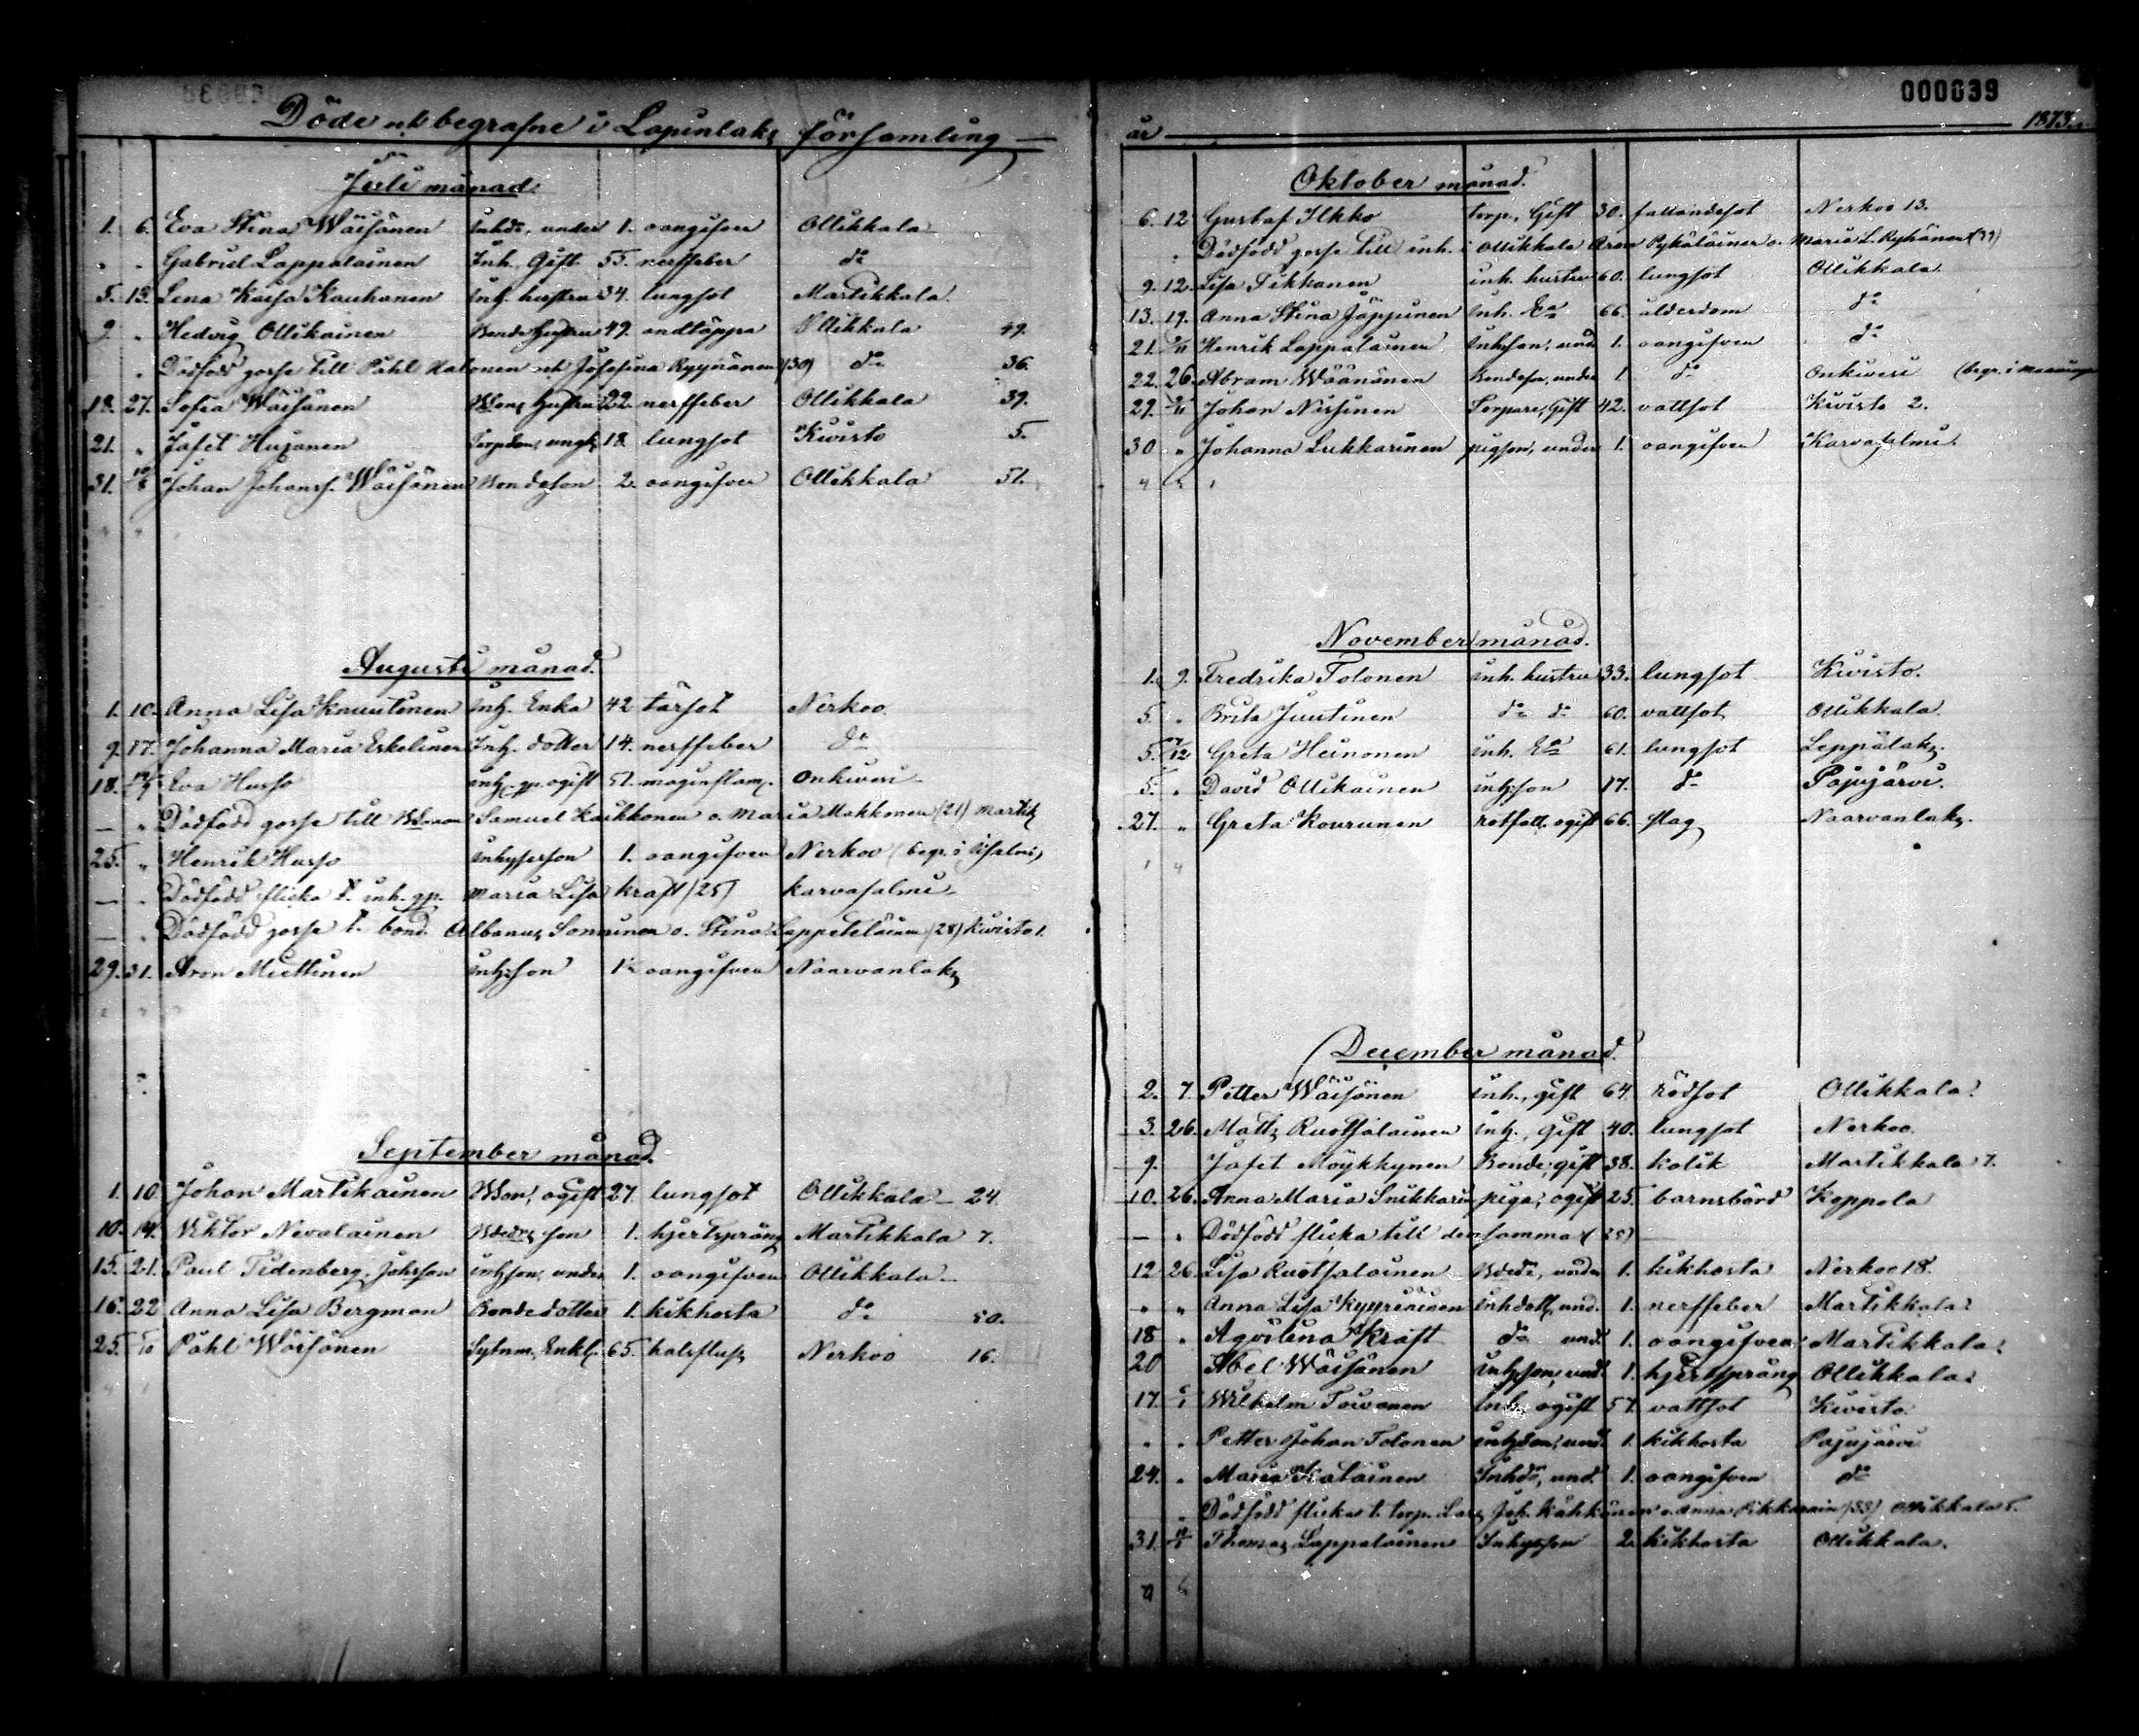 Döde och begrafne i Lapinlaks församling
Juli månad.
1. 6. Eva Stina Wäisänen Inhdr, under 1. oangifven Ollikkala
" " Gabriel Lappalainen Inh. Gift. 55. nerffeber do
5. 13. Lena Kaisa Kauhanen Inh. hustru 34. lungsot Martikkala.
9. " Hedvig Ollikainen Bonde hustru 49. andtäppa Ollikkala 49.
" Dödfödd gosse till Påhl Halonen och Josefina Ryynänen (30) do 36.
18. 27. Sofia Wäisänen hustru 22. nerffeber Ollikkala 39.
21. " Jafet Hujanen ungk. 18. lungsot Kivisto 5.
31. 10/8 Johan Johanss. Wäisänen Bondeson 2. oangifven Ollikkala 51.
Augusti månad.
1. 10. Anna Lisa Knuutinen Inh. Enka 42 tärsot Nerkoo.
9. 17. Johanna Maria Eskelinen Inh. dotter 14. nerffeber do
18. Eva Husso inh. ogift 51. maginflam. Onkivesi.
— " Dödfödd gosse till Samuel Kaikkonen o. Maria Makkonen (21) Martik
25. " Henrik Husso inhysesson 1. oangifven Nerkoo (begr. i Idsalmi)
— " Dödfödd flicka t. inh. pp. Maria Lisa Kraft (25) Karvasalmi.
— " Dödfödd gosse t. bond. Albanus Sonninen o. Stina Lappeteläinen (28) Kivisto 1.
29. 31. Aron Miettinen inh:son 1. oangifven Naarvanlaks
September månad.
1. 10. Johan Martikainen ogift 27. lungsot Ollikkala — 24.
10. 14. Viktor Nevalainen son 1. hjertsprång Martikkala 7.
15. 21. Paul Tidenberg, Johsson inhson, under 1. oangifven Ollikkala.
16. 22 Anna Lisa Bergman Bondedotter 1. kikhosta do 50.
25. 5/10 Påhl Wäisänen Sytnm. Enkl. 65. halsfluss Nerkoo 16.
000039
år — 1873.
Oktober månad.
6. 12 Gustaf Ilkko torp., Gift 30. fallandesot Nerkoo 13.
" Dödfödd gosse till inh. i Ollikkala Aron Pykäläinen o. Maria L. Ryhänen (39)
9. 12. Lisa Tikkanen inh. hustru 60. lungsot Ollikkala.
13. 19. Anna Stina Jäppinen inh. Ea 66. ålderdom do
21. 2/11 Henrik Lappalainen inhson, und 1. oangifven do
22. 26. Abram Wäänänen Bondeson, under 1. do Onkivesi (begr. i Maaninga
29. 2/11 Johan Nissinen Torpare, Gift 42. vattsot Kivisto 2.
30 " Johanna Lukkarinen pigson, under 1. oangifven Karvasalmi.
November månad.
1. 9. Fredrika Tolonen inh. hustru 33. lungsot Kivisto.
5. " Brita Juutinen do do 60. vattsot Ollikkala.
5. 7/12 Greta Heinonen inh. Ea 61. lungsot Leppälaks.
5. " David Ollikainen inh:son 17. do Pajujärvi.
27. " Greta Kourunen rotfatt. ogift 66. slag Naarvanlaks.
December månad.
2. 7. Petter Wäisänen inh., gift 64. rödsot Ollikkala.
3. 26. Matts Ruotsalainen inh., gift 40. lungsot Nerkoo.
9. Jafet Möykkynen Bonde, gift 38. kolik Martikkala 7.
10. 26. Anna Maria Snikkarin piga, ogift 25. barnsbörd Koppola
— " Dödfödd flicka till densamma (25) —
12 26 Lisa Ruotsalainen under 1. kikhosta Nerkoo 18.
" " Anna Lisa inhdott, und. 1. nerffeber Martikkala
18 " Agvilina Kraft do und. 1. oangifven Martikkala.
20 Abel Wäisänen inh:son, und. 1. hjertsprång Ollikkala.
17. 6/1 Wilhelm Toivanen inh. ogift 57. vattsot Kivisto.
" " Petter Johan Tolonen inhson, und. 1. kikhosta Pajujärvi
24. " Maria Inhdr, und. 1. oangifven do
" Dödfödd flicka t. torp. Lars Joh. Kähkönen o. Anna (33) Ollikkala 5.
31. Thomas Lappalainen Inhysson 2. kikhosta Ollikkala.